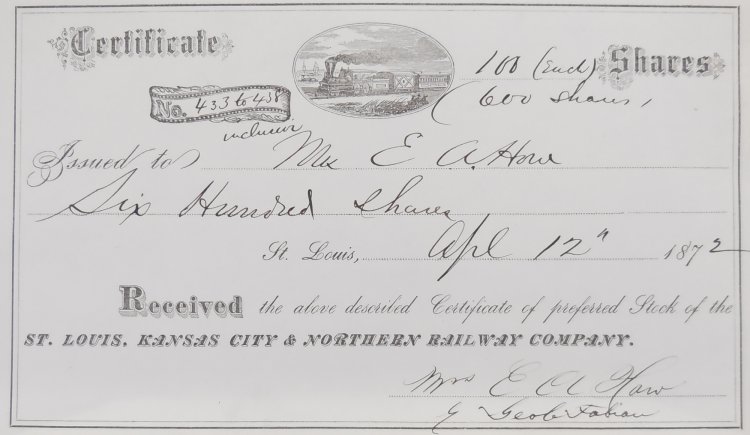 Certificate 100 (Each) Shares
No. 433 to 438 (600 shares,
inclusive
Issued to Mrs E. A. Howe
Six Hundred Shares
St. Louis, Apl 12" 1872
Received the above described Certificate of preferred Stock of the
ST. LOUIS, KANSAS CITY & NORTHERN RAILWAY COMPANY.
Mrs E A How
Geo